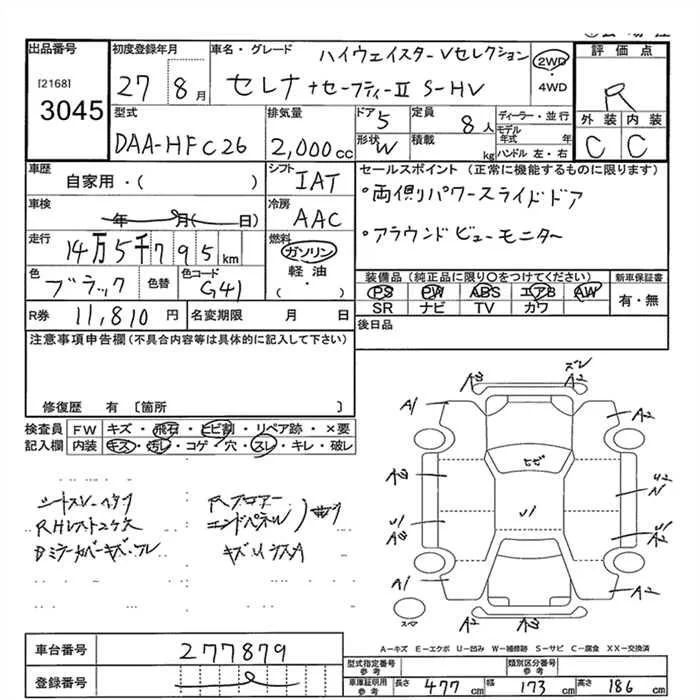 出品番号
[2168]
3045
初度登録年月
27 8月
車名・グレード
ハイウェイスターVセレクション
セレナ +セーフティーII S-HV
2WD
・
4WD
評価点
R
外装 内装
C C
型式
DAA-HFC26
排気量
2,000cc
ドア
5
定員
8人
形状
W
積載
kg
ディーラー・並行
モデル年式 年
ハンドル 左・右
車歴
自家用・( )
シフト
IAT
車検
年 月( 日)
冷房
AAC
走行
14万5千795km
燃料
ガソリン
軽・油
・( )
色
ブラック
色替
色コード
G41
R券 11,810円
名変期限 月 日
セールスポイント (正常に機能するものに限ります)
・両側パワースライドドア
・アラウンドビューモニター
装備品 (純正品に限り○をつけてください)
PS PW ABS エアB AW
SR ナビ TV カワ
新車保証書
有・無
後日品
注意事項申告欄 (不具合内容等は具体的に記入して下さい)
修復歴 有 〔箇所 〕
検査員記入欄
FW キズ・飛石・ヒビ割・リペア跡・×要
内装 キズ・汚レ・コゲ・穴・スレ・キレ・破レ
Rフロアー
エンドパネル
ズレ
A3 A2
A1 A2
ヒビ
A3
U2
N
U1
U1
A3
U1
A2
A1 A2
A2 A3
スマ
A-キズ E-エクボ U-凹み W-補修跡 S-サビ C-腐食 XX-交換済
車台番号
277879
登録番号
型式指定番号
参考
類別区分番号
参考
車庫証明用
参考
長さ 477cm 幅 173cm 高さ 186cm